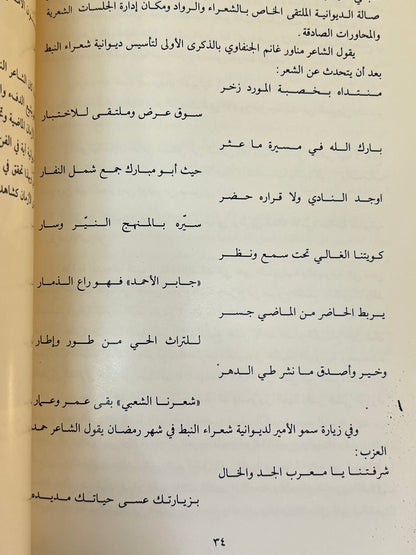 صالة الديوانية الملتقى الخاص بالشعراء والرواد ومكان إدارة الجلسات الشعرية
والمحاورات الصادقة.
يقول الشاعر مناور غانم الجنفاوي بالذكرى الأولى لتأسيس ديوانية شعراء النبط
بعد أن يتحدث عن الشعر:
منتداه بخصبة المورد زخر
سوق عرض وملتقى للاختبار
بارك الله في مسيرة ما عثر
حيث أبو مبارك جمع شمل النفار
اوجد النادي ولا قراره حضر
سيّره بالمنهج النيّر وسار
كويتنا الغالي تحت سمع ونظر
«جابر الأحمد» فهو راع الذمار
يربط الحاضر من الماضي جسر
للتراث الحي من طور وإطار
وخير وأصدق ما نشر طي الدهر
«شعرنا الشعبي» بقى عمر وعمار
وفي زيارة سمو الأمير لديوانية شعراء النبط في شهر رمضان يقول الشاعر حمد
العزب:
شرفتنا يا معرب الجد والخال
بزيارتك عسى حياتك مديده
٣٤